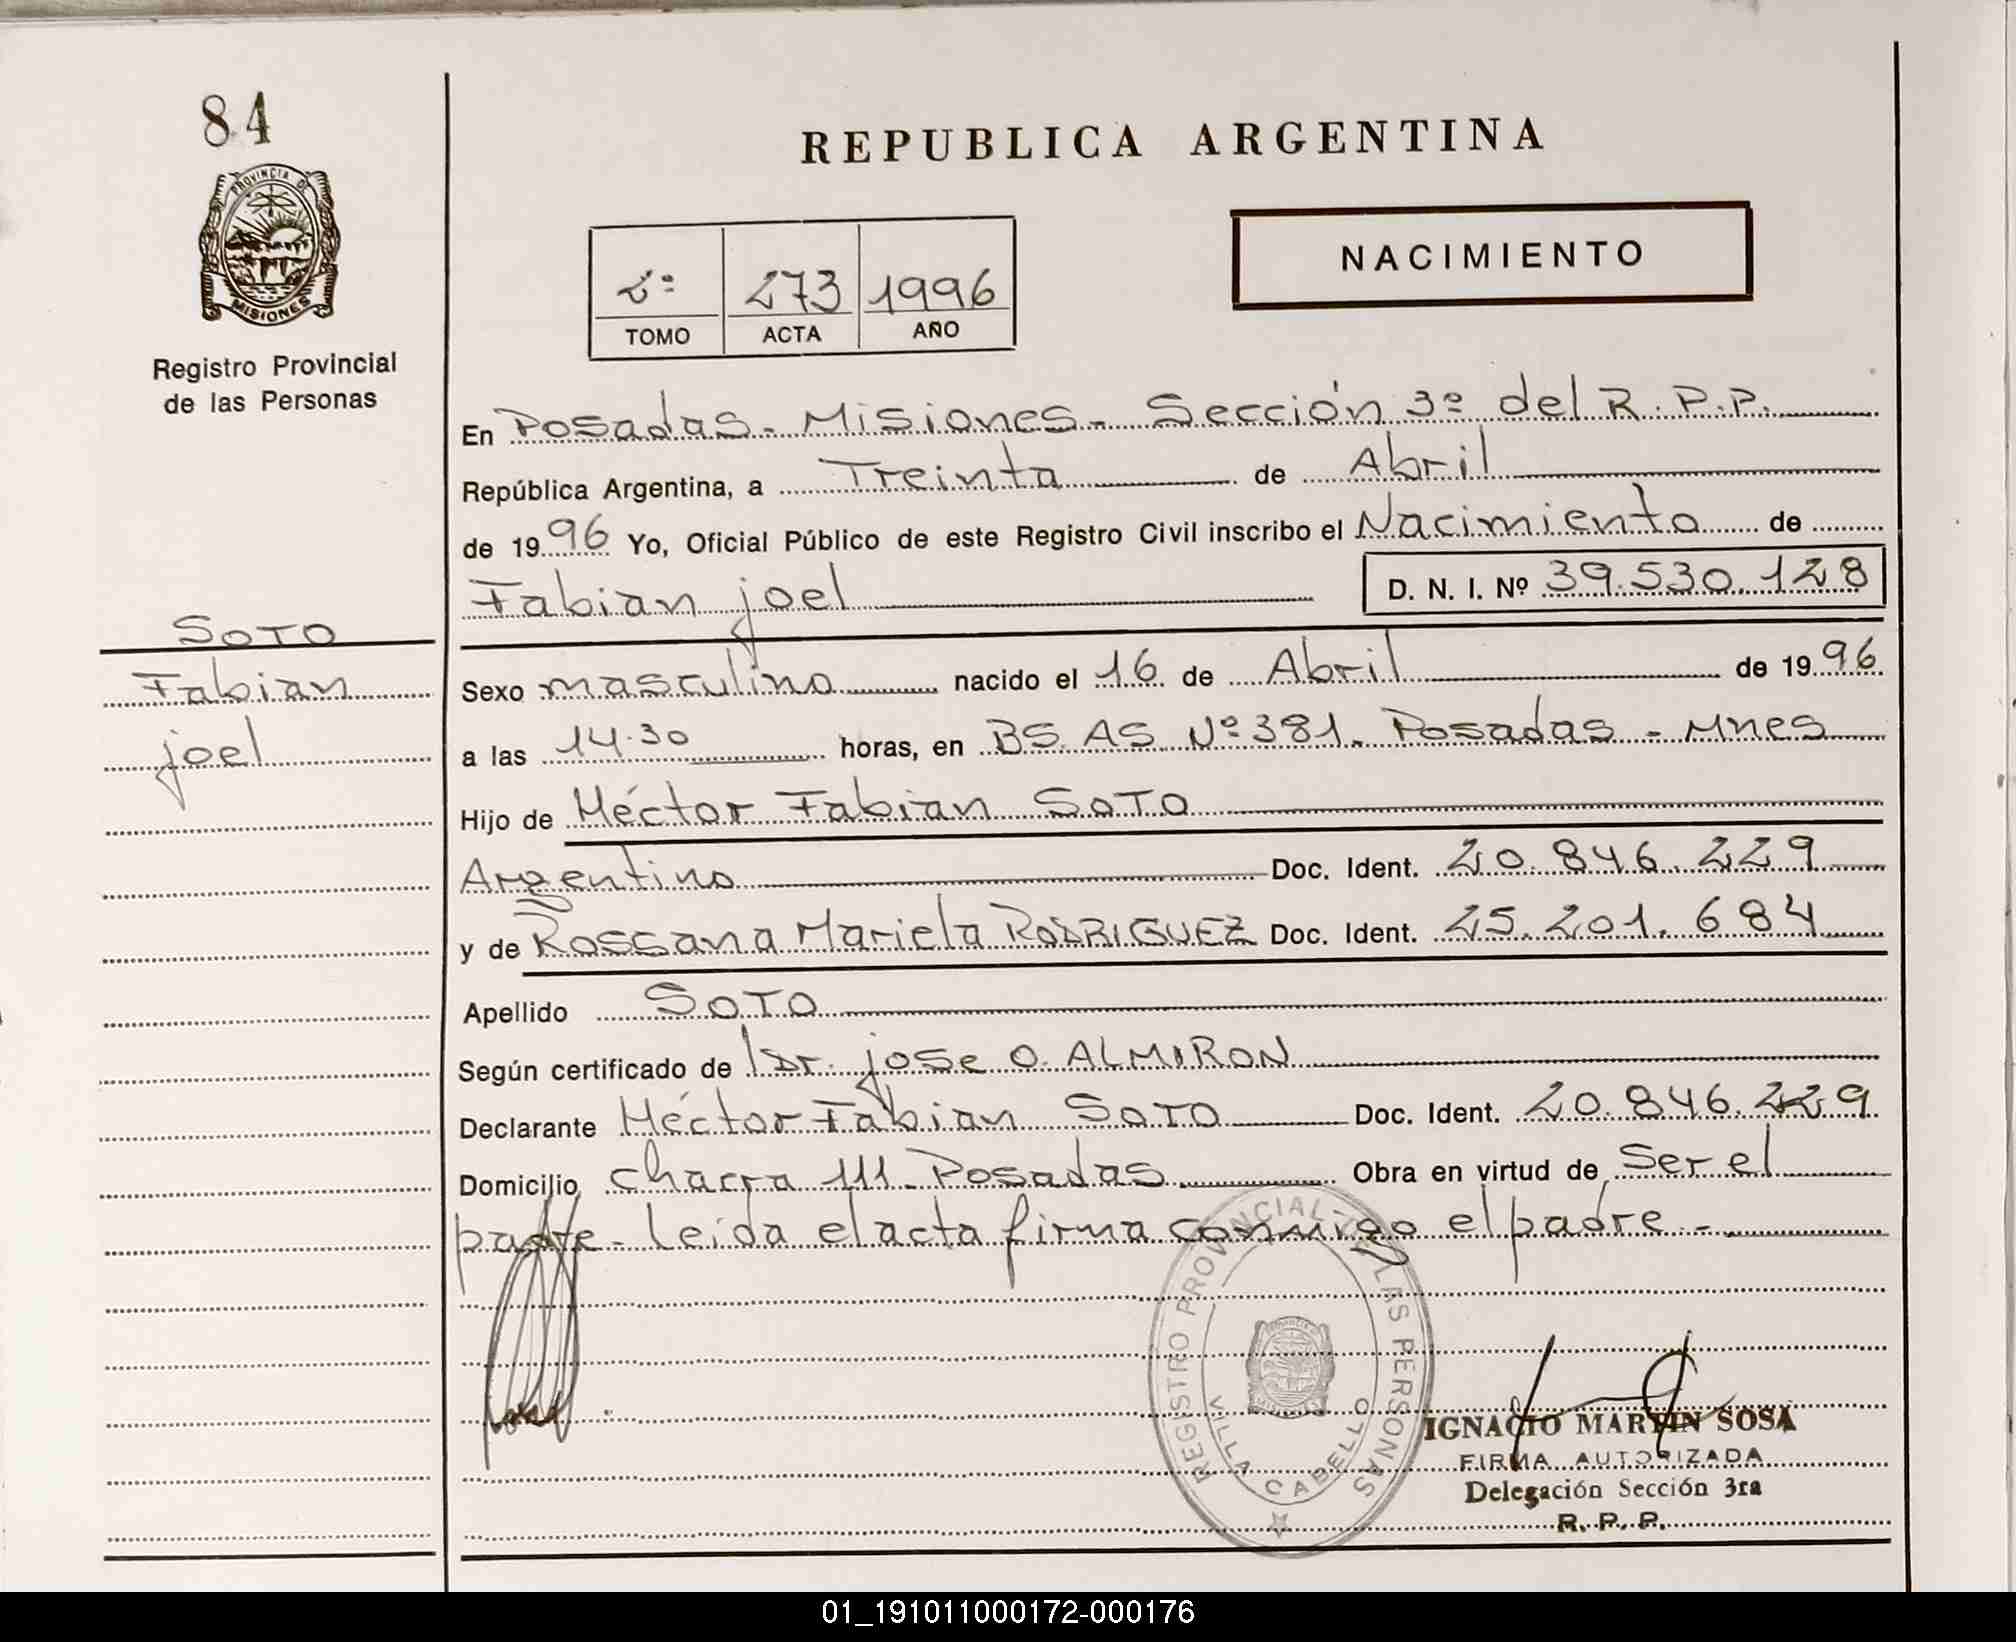 84
PROVINCIA DE
MISIONES
Registro Provincial
de las Personas
SOTO
Fabian
joel
REPUBLICA ARGENTINA
NACIMIENTO
2º 273 1996
TOMO ACTA AÑO
En Posadas - Misiones - Sección 3º del R.P.P.
República Argentina, a Treinta de Abril
de 1996 Yo, Oficial Público de este Registro Civil inscribo el Nacimiento de
Fabian joel D. N. I. Nº 39.530.128
Sexo masculino nacido el 16 de Abril de 1996
a las 14.30 horas, en BS. AS Nº 381. Posadas - Mnes
Hijo de Héctor Fabian SOTO
Argentino Doc. Ident. 20.846.229
y de Rossana Mariela RODRIGUEZ Doc. Ident. 25.201.684
Apellido SOTO
Según certificado de Dr. jose O. ALMIRON
Declarante Héctor Fabian SOTO Doc. Ident. 20.846.229
Domicilio chacra 111 - Posadas Obra en virtud de Ser el
padre - leida el acta firma conmigo el padre -
REGISTRO PROVINCIAL DE LAS PERSONAS
VILLA CABELLO
IGNACIO MARTIN SOSA
FIRMA AUTORIZADA
Delegación Sección 3ra
R. P. P.
01_191011000172-000176